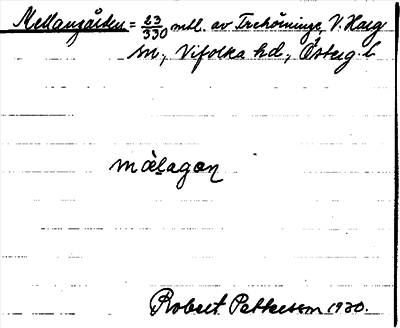 Mellangården = 23/330 mtl. av Trehörninge, V. Harg
sn, Vifolka hd, Österg. l.
mälagon
Robert Petterson 1930.